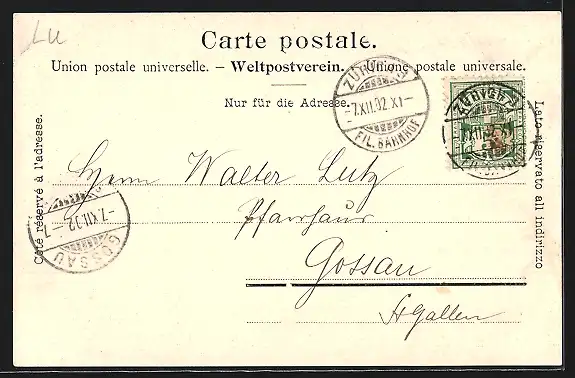 LU
Carte postale.
Union postale universelle. – Weltpostverein. – Unione postale universale.
Nur für die Adresse.
Côté réservé à l'adresse.
Lato riservato all indirizzo
ZÜRICH
-7.XII.02.XI-
FIL. BAHNHOF
ZÜRICH
Herrn Walter Lutz
Pfarrhaus
Gossau
St Gallen
-7.XII.02.-7
GOSSAU